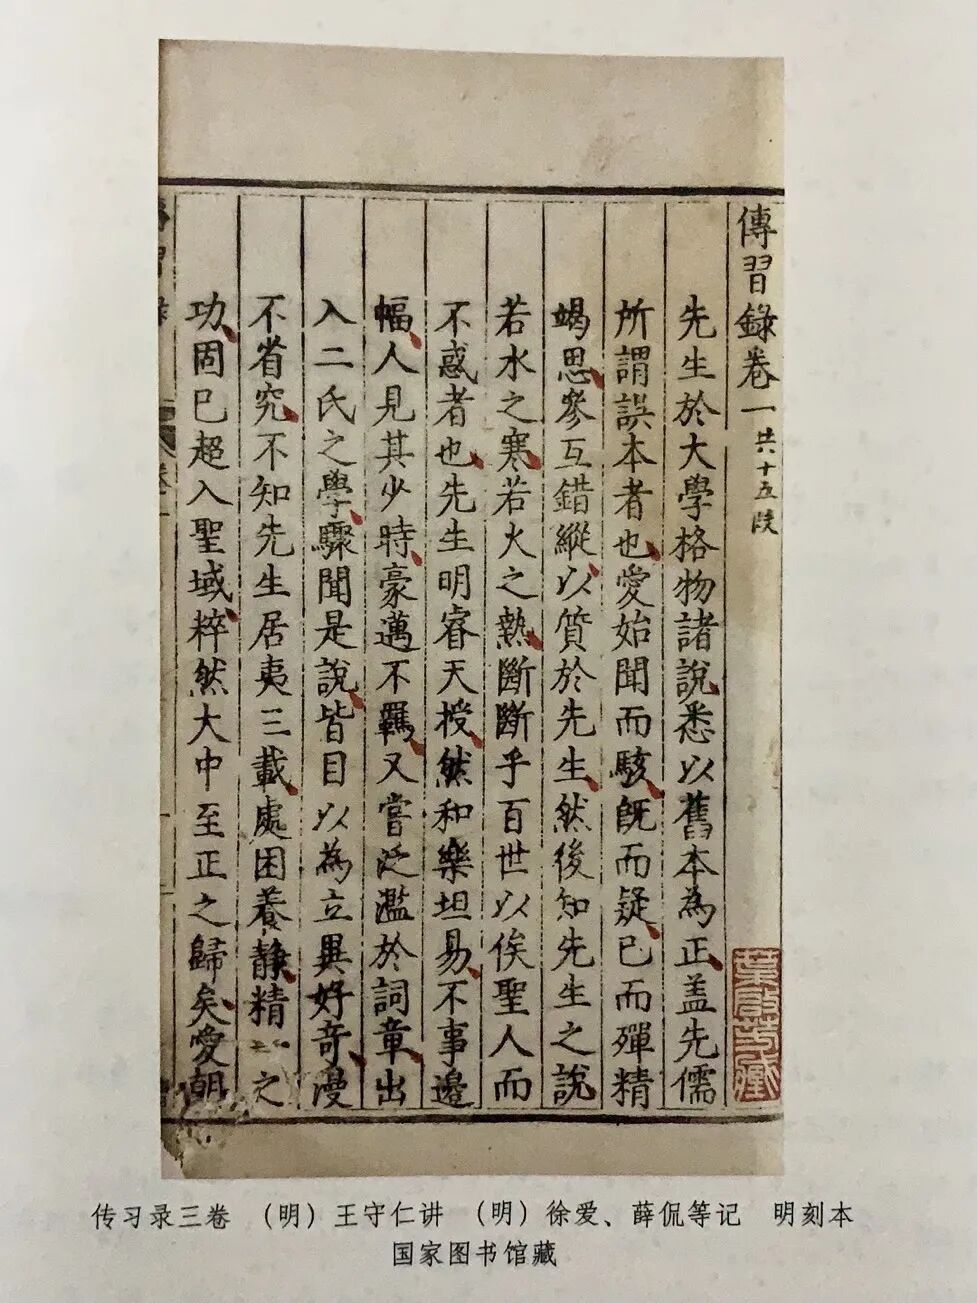 傳習錄卷一 共十五段
先生於大學格物諸說悉以舊本為正盖先儒
所謂誤本者也愛始聞而駭旣而疑已而殫精
竭思參互錯縱以質於先生然後知先生之說
若水之寒若火之熱斷斷乎百世以俟聖人而
不惑者也先生明睿天授然和樂坦易不事邊
幅人見其少時豪邁不羈又嘗泛濫於詞章出
入二氏之學驟聞是說皆目以為立異好奇漫
不省究不知先生居夷三載處困養静精一之
功固已超入聖域粹然大中至正之歸矣愛朝
传习录三卷 （明）王守仁讲 （明）徐爱、薛侃等记 明刻本
国家图书馆藏